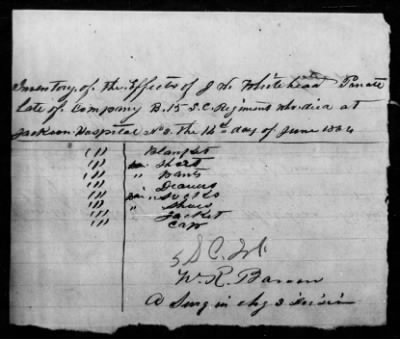 Inventory of the Effects of J W Whitehead Private
late of Company B. 15 S.C. Regiment who died at
Jackson Hospital No 2 the 14th day of June 1864
(1) Blanket
(1) Shirt
(1) " Pants
(1) Drawers
(1) Socks
(1) " Shoes
(1) Jacket
(1) Cap
S C
W. R. Barron
A Surg in chg 3 Division